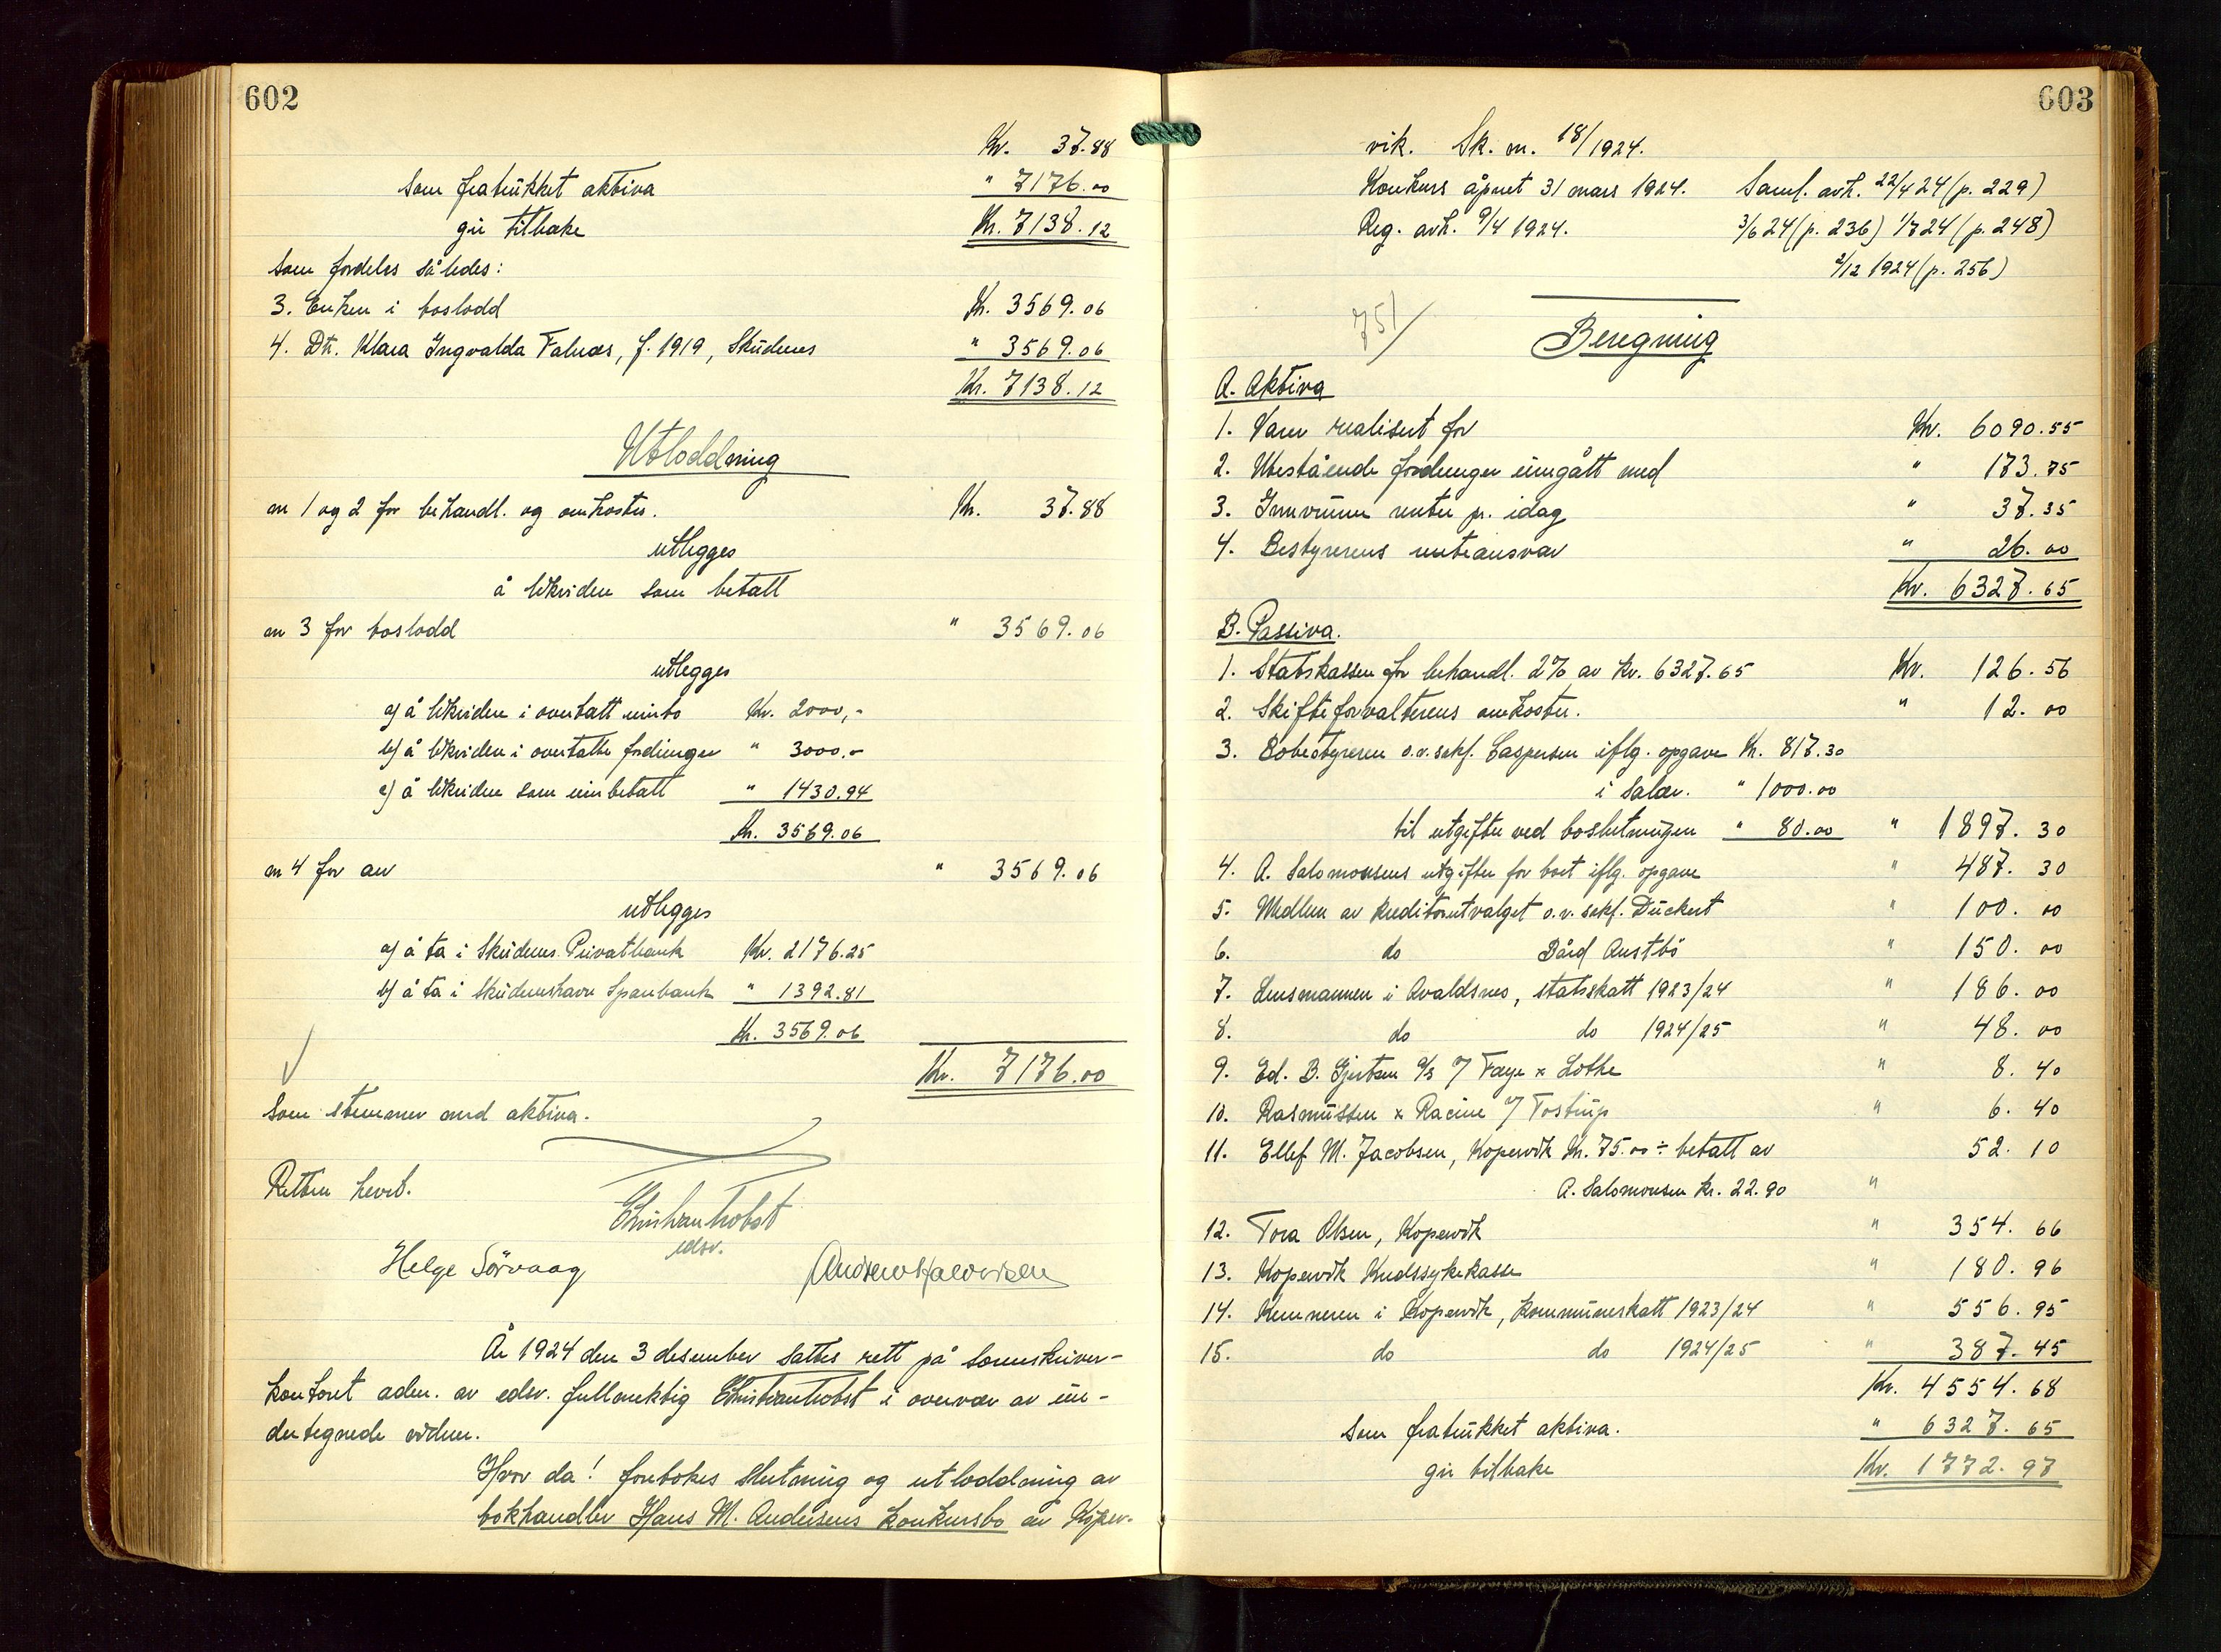 602
Kr. 37.88
som fratrukket aktiva " 7176.00
gir tilbake Kr. 7138.12
Som fordeles således:
3. Enken i boslodd Kr. 3569.06
4. Dtr. Klara Ingvalda Falnes, f. 1919, Skudenes " 3569.06
Kr. 7138.12
Utloddning
an 1 og 2 for behandl. og omkostn. Kr. 37.88
utlegges
å likviden som betalt
an 3 for boslodd " 3569.06
utlegges
a) å likviden i overtatt innbo Kr. 2000,-
b) å likviden i overtatte fordringer " 3000.-
c) å likviden som innbetalt " 1430.94
Kr. 3569.06
an 4 for arv " 3569.06
utlegges
a) å ta i Skudenes Privatbank Kr. 2176.25
b) å ta i Skudeneshavn Sparebank " 1392.81
Kr. 3569.06
Kr. 7176.00
Som stemmer med aktiva.
Retten hevet.
Christian Trobst
edsv.
Helge Sörvaag Andrew Halvorsen
År 1924 den 3 desember sattes rett på sorenskriver-
kontoret adm. av edsv. fullmektig Christian Trobst i overvær av un-
dertegnede vidner.
Hvor da! foretokes slutning og utloddning av
bokhandler Hans M. Andersens konkursbo av Koper-
603
vik. Sk. m. 18/1924.
Konkurs åpnet 31 mars 1924. Saml. avh. 22/4 24 (p. 229)
Reg. avh. 9/4 1924. 3/6 24 (p. 236) 1/7 24 (p. 248)
2/12 1924 (p. 256)
751/
Beregning
A. Aktiva
1. Varer realisert for Kr. 6090.55
2. Utestående fordringer inngått med " 173.75
3. Innvunne renter pr. idag " 37.35
4. Bestyrerens renteansvar " 26.00
Kr. 6327.65
B. Passiva.
1. Statskassen for behandl. 2% av kr. 6327.65 Kr. 126.56
2. Skifteforvalterens omkostn. " 12.00
3. Bobestyreren o.r.sakf. Caspersen iflg. opgave Kr. 817.30
i salær. " 1000.00
til utgifter ved boslutningen " 80.00 " 1897.30
4. A. Salomonsens utgifter for boet iflg. opgave " 487.30
5. Medlem av kreditorutvalget o.r. sakf. Duckert " 100.00
6. do Bård Austbö " 150.00
7. Lensmannen i Avaldsnes, statsskatt 1923/24 " 186.00
8. do do 1924/25 " 48.00
9. Ed. B. Gjertsen A/S 7 Faye & Lothe " 8.40
10. Rasmussen & Racine 7 Tostrup " 6.40
11. Ellef M. Jacobsen, Kopervik Kr. 75.00 ÷ betalt av 52.10
A. Salomonsen kr. 22.90 "
12. Tora Olsen, Kopervik " 354.66
13. Kopervik Kredssykekasse " 180.96
14. Kemneren i Kopervik, kommuneskatt 1923/24 " 556.95
15. do do 1924/25 " 387.45
Kr. 4554.68
Som fratrukket aktiva. " 6327.65
gir tilbake Kr. 1772.97